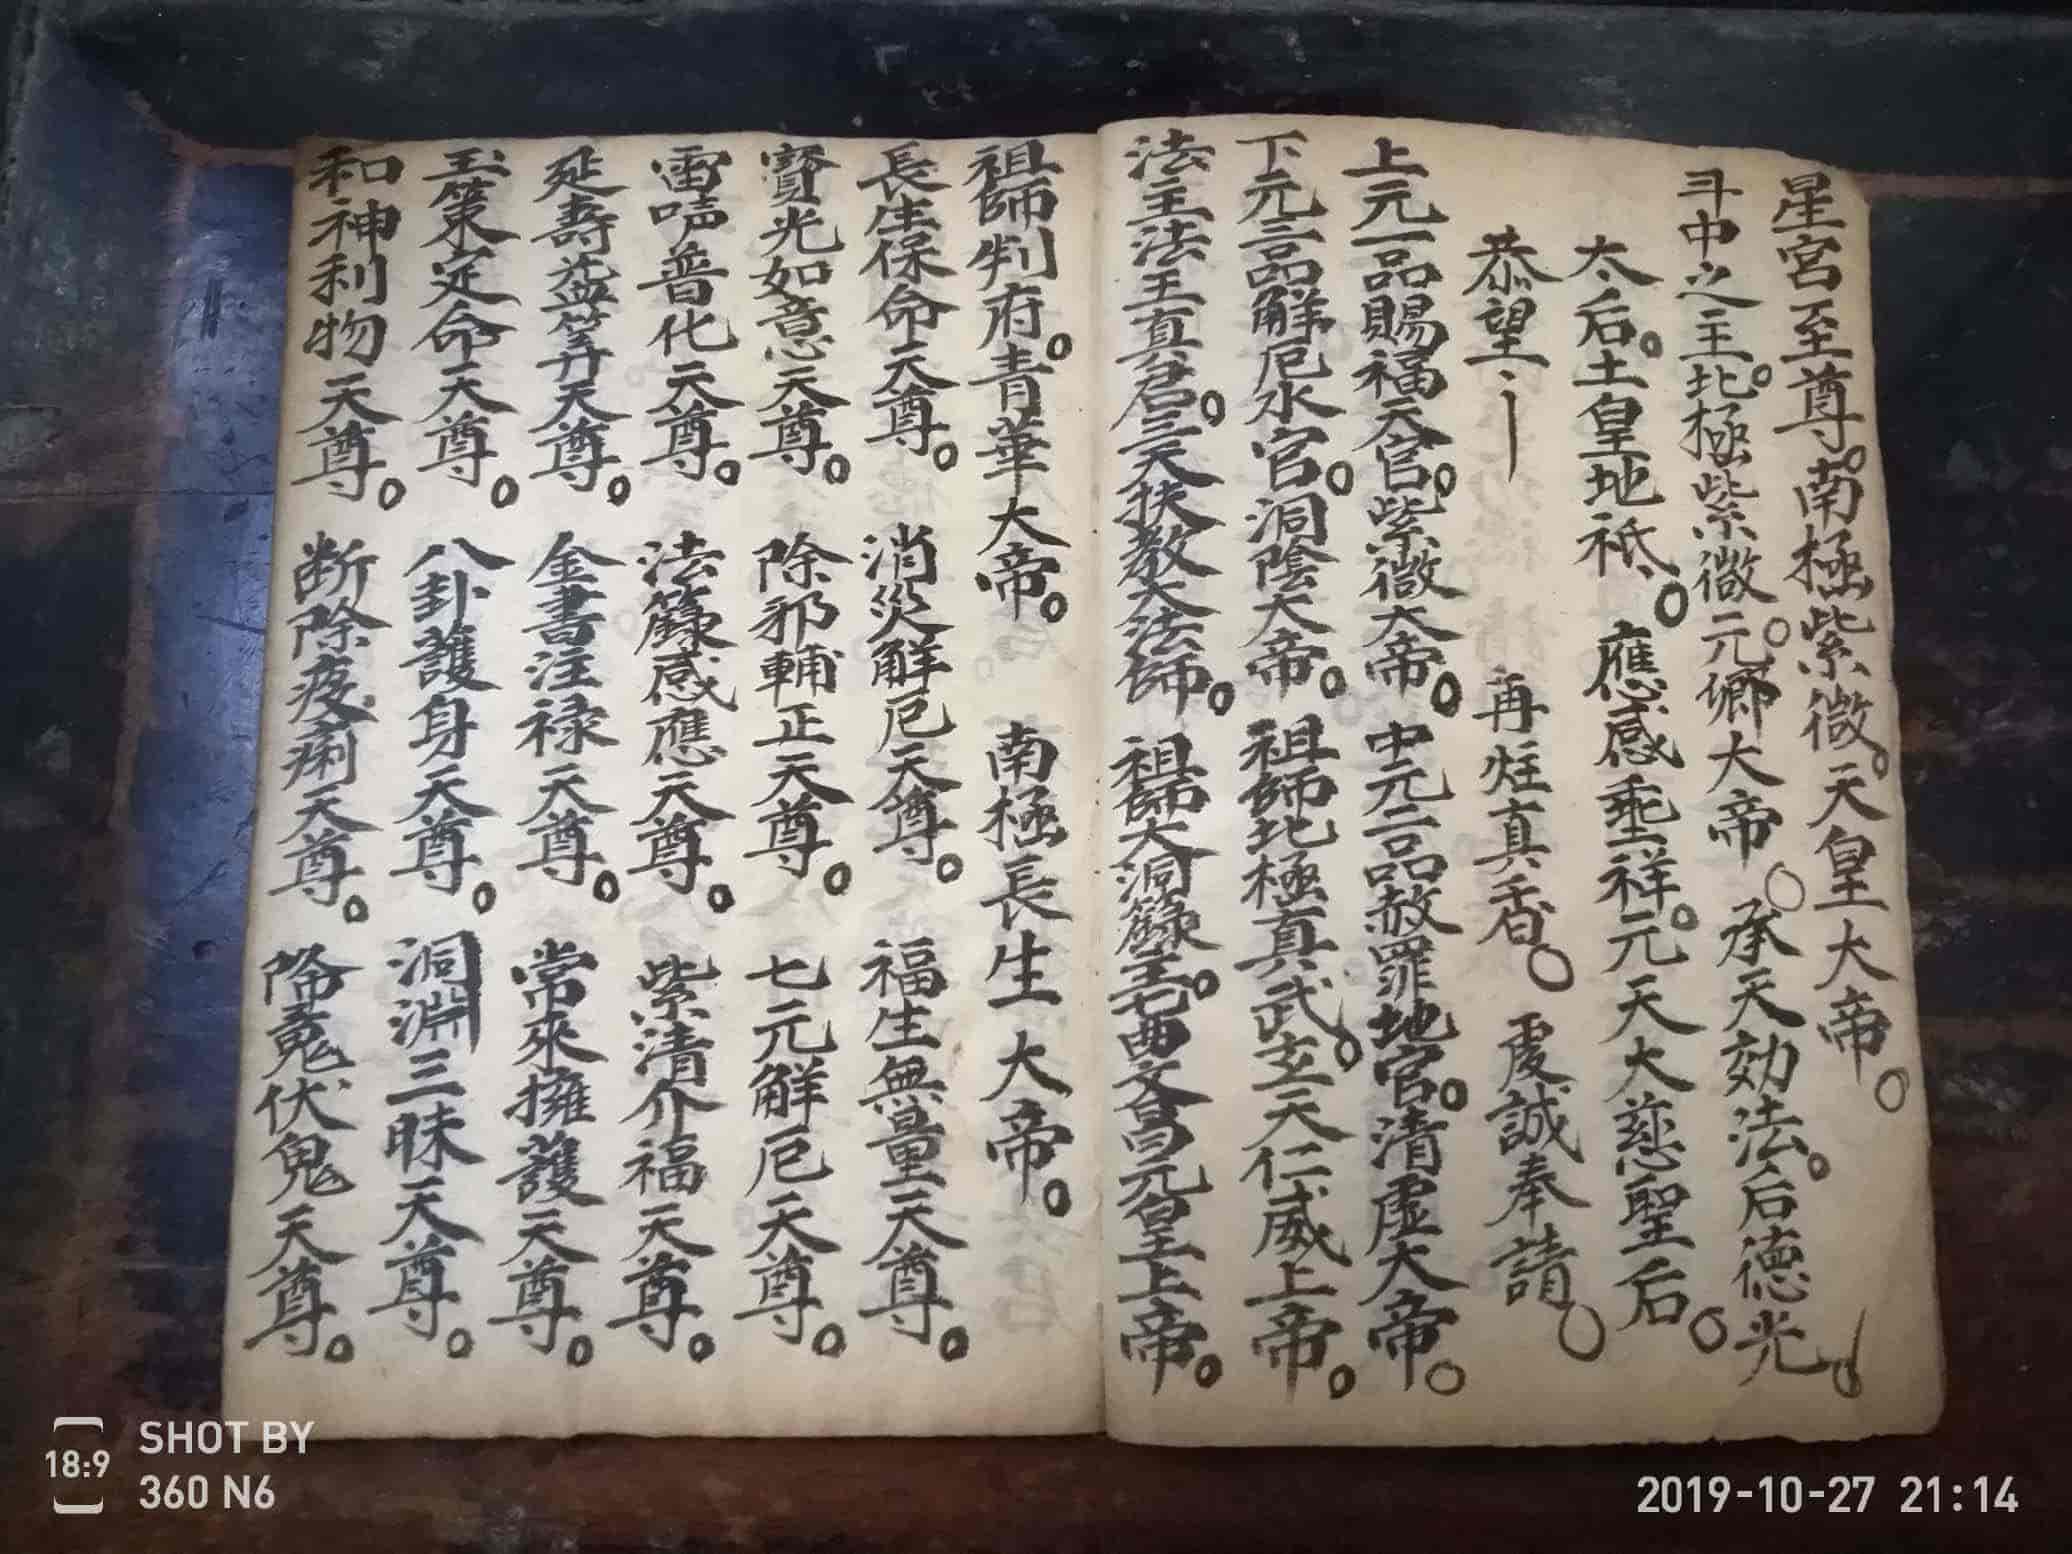 星宮至尊。南極紫微。天皇大帝。
斗中之主。北極紫微。元卿大帝。承天効法。后德光
大后。土皇地祇。應感垂祥。元天大慈聖后。
恭望〻丨 再炷真香。虔誠奉請。
上元一品賜福天官。紫微大帝。中元二品赦罪地官。清虛大帝。
下元三品解厄水官。洞陰大帝。祖師北極真武。玄天仁威上帝。
法主法王真君。三天扶教大法師。祖師大洞籙主。七曲文昌元皇上帝。
祖師判府。青華大帝。南極長生大帝。
長生保命天尊。消災解厄天尊。福生無量天尊。
寶光如意天尊。除邪輔正天尊。七元解厄天尊。
雷声普化天尊。法籙感應天尊。紫清介福天尊。
延壽益算天尊。金書注禄天尊。常來擁護天尊。
玉策定命天尊。八卦護身天尊。洞淵三昧天尊。
和神利物天尊。断除疫痢天尊。降魔伏鬼天尊。
SHOT BY
18:9
360 N6
2019-10-27 21:14